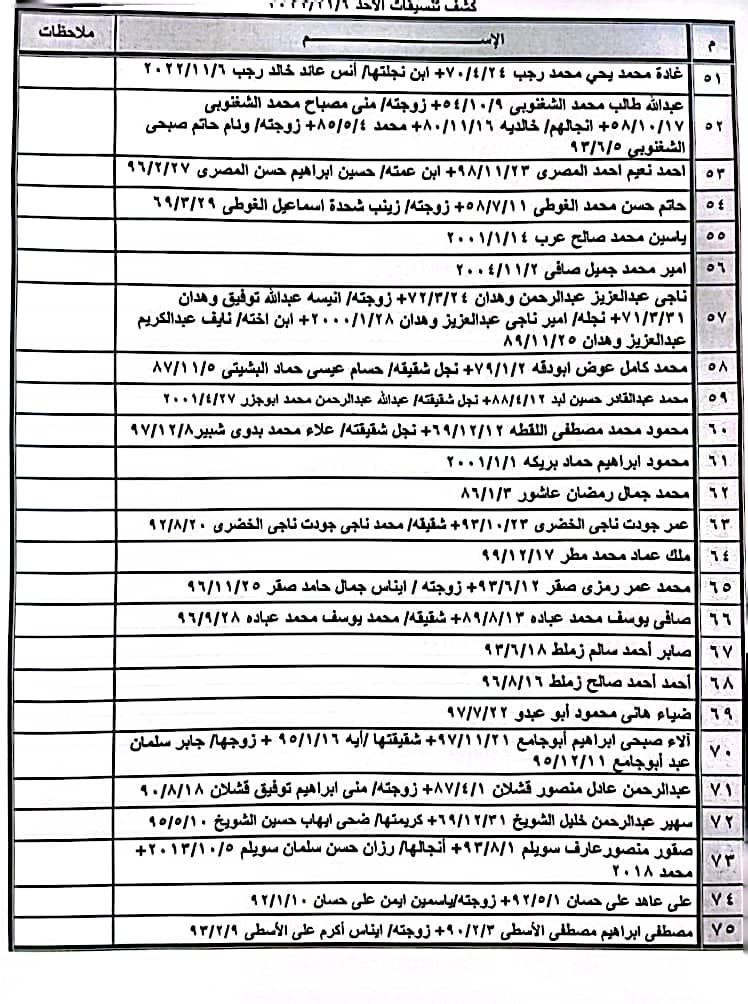 كشف تنسيقات الأحد
م الإســـم ملاحظات
٥١ غادة محمد يحي محمد رجب ٧٠/٤/٢٤+ ابن نجلتها/ أنس عائد خالد رجب ٢٠٢٢/١١/٦
٥٢ عبدالله طالب محمد الشغنوبى ٥٤/١٠/٩+ زوجته/ منى مصباح محمد الشغنوبى
٥٨/١٠/١٧+ انجالهم/ خالديه ٨٠/١١/١٦+ محمد ٨٥/٥/٤+ زوجته/ ونام حاتم صبحى
الشغنوبى ٩٣/٦/٥
٥٣ احمد نعيم احمد المصرى ٩٨/١١/٢٣+ ابن عمته/ حسين ابراهيم حسن المصرى ٩٦/٢/٢٧
٥٤ حاتم حسن محمد الغوطى ٥٨/٧/١١+ زوجته/ زينب شحدة اسماعيل الغوطى ٦٩/٣/٢٩
٥٥ ياسين محمد صالح عرب ٢٠٠١/١/١٤
٥٦ امير محمد جميل صافى ٢٠٠٤/١١/٢
٥٧ ناجى عبدالعزيز عبدالرحمن وهدان ٧٢/٣/٢٤+ زوجته/ انيسه عبدالله توفيق وهدان
٧١/٣/٣١+ نجله/ امير ناجى عبدالعزيز وهدان ٢٠٠٠/١/٢٨+ ابن اخته/ نايف عبدالكريم
عبدالعزيز وهدان ٨٩/١١/٢٥
٥٨ محمد كامل عوض ابودقه ٧٩/١/٢+ نجل شقيقه/ حسام عيسى حماد البشيتى ٨٧/١١/٥
٥٩ محمد عبدالقادر حسين لبد ٨٨/٤/١٢+ نجل شقيقته/ عبدالله عبدالرحمن محمد ابوجزر ٢٠٠١/٤/٢٧
٦٠ محمود محمد مصطفى اللقطه ٦٩/١٢/١٢+ نجل شقيقته/ علاء محمد بدوى شبير٩٧/١٢/٨
٦١ محمود ابراهيم حماد بريكه ٢٠٠١/١/١
٦٢ محمد جمال رمضان عاشور ٨٦/١/٣
٦٣ عمر جودت ناجى الخضرى ٩٣/١٠/٢٣+ شقيقه/ محمد ناجى جودت ناجى الخضرى ٩٢/٨/٢٠
٦٤ ملك عماد محمد مطر ٩٩/١٢/١٧
٦٥ محمد عمر رمزى صقر ٩٣/٦/١٢+ زوجته / ايناس جمال حامد صقر ٩٦/١١/٢٥
٦٦ صافى يوسف محمد عباده ٨٩/٨/١٣+ شقيقه/ محمد يوسف محمد عباده ٩٦/٩/٢٨
٦٧ صابر أحمد سالم زملط ٩٣/٦/١٨
٦٨ أحمد أحمد صالح زملط ٩٦/٨/١٦
٦٩ ضياء هانى محمود أبو عبدو ٩٧/٧/٢٢
٧٠ آلاء صبحى ابراهيم أبوجامع ٩٧/١١/٢١+ شقيقتها /أيه ٩٥/١/١٦ + زوجها/ جابر سلمان
عبد أبوجامع ٩٥/١٢/١١
٧١ عبدالرحمن عادل منصور قشلان ٨٧/٤/١+ زوجته/ منى ابراهيم توفيق قشلان ٩٠/٨/١٨
٧٢ سهير عبدالرحمن خليل الشويخ ٦٩/١٢/٣١+ كريمتها/ ضحى ايهاب حسين الشويخ ٩٥/٥/١٠
٧٣ صقور منصورعارف سويلم ٩٣/٨/١+ أنجالها/ رزان حسن سلمان سويلم ٢٠١٣/١٠/٥+
محمد ٢٠١٨
٧٤ على عاهد على حسان ٩٢/٥/١+ زوجته/ياسمين ايمن على حسان ٩٢/١/١٠
٧٥ مصطفى ابراهيم مصطفى الأسطى ٩٠/٢/٣+ زوجته/ ايناس أكرم على الأسطى ٩٣/٢/٩